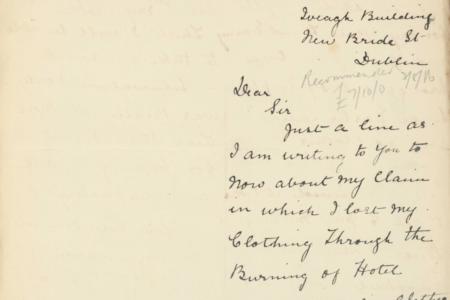 Iveagh Building
New Bride St.
Dublin
Recommended
£7/10/0
Dear
Sir
Just a line as
I am writing to you to
Now about my Claim
in which I lost my
Clothing Through the
Burning of Hotel